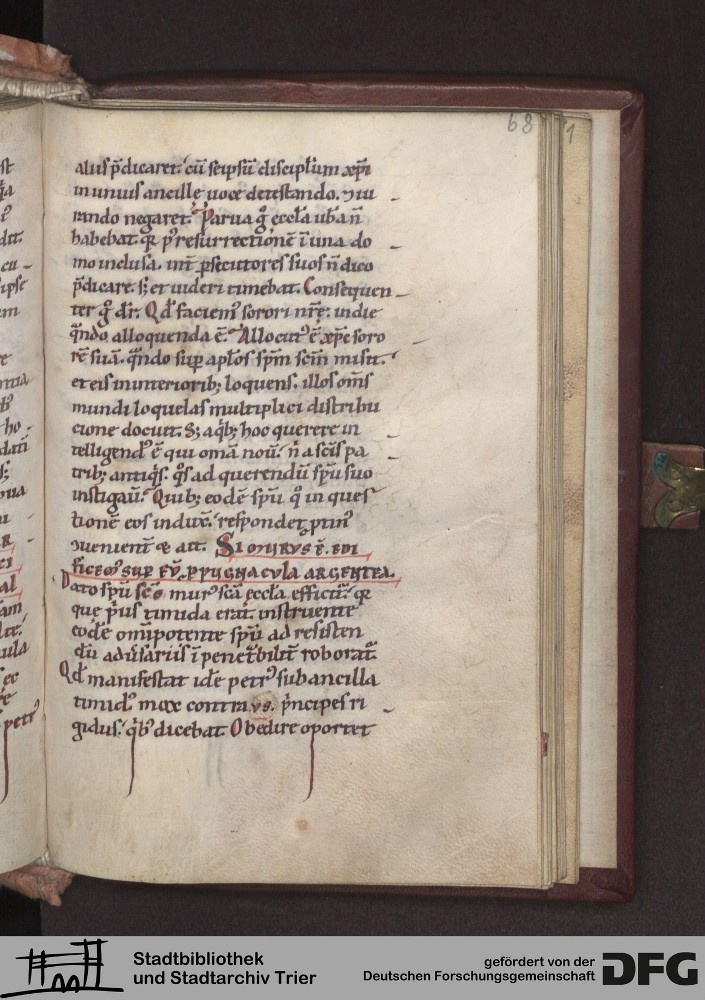 68
1
aluf p̄dicaret. cū seipsū discipl̄um xp̄i
in unius ancille uoce detestando. ⁊ iu
rando negaret. Parua g̊ eccl̄a ubera n̄
habebat. q̄ p̄ resurrectionē ī una do
mo inclusa. int̄ psecutores suos n̄ dico
p̄dicare. s; et uideri timebat. Consequen
ter g̊ dr̄. Qd̄ faciem᾿ sorori nr̄ę. in die
qn̄do alloquenda ē. Allocut᾿ ē xp̄c soro
rē suā. qn̄do sup apl̄os sp̄m sc̄m misit.
et eis in interiorib; loquens. illos om̄s
mundi loquelas multiplici distribu
cione docuit. S; aq̄b; hoc querere in
telligend᾿ ē qui om̄a nouit. n̄ a sc̄is pa
trib; antiq̄s. q̊s ad querendū sp̄u suo
instigauit. Quib; eodē sp̄u q̊ in ques
tionē eos induxit. respondet
⁊uenient᾿ ⁊ ait. SI MURUS Ē. EDI
FICEM᾿ SUP EŪ. PPUGNACULA ARGENTEA.
Dato sp̄u sc̄o mur᾿ sc̄a eccl̄a efficit᾿. q̄
que p̄us timida erat. instruente
eodē om̄ipotente sp̄u ad resisten
dū adūsariis īpenet̄bilit̄ roborat᾿.
Qd̄ manifestat idē petr᾿ sub ancilla
timid᾿. mox contra p̄ncipes ri
gidus. q̄b᾿ dicebat. Obedire oportet
Stadtbibliothek
und Stadtarchiv Trier
gefördert von der
Deutschen Forschungsgemeinschaft
DFG